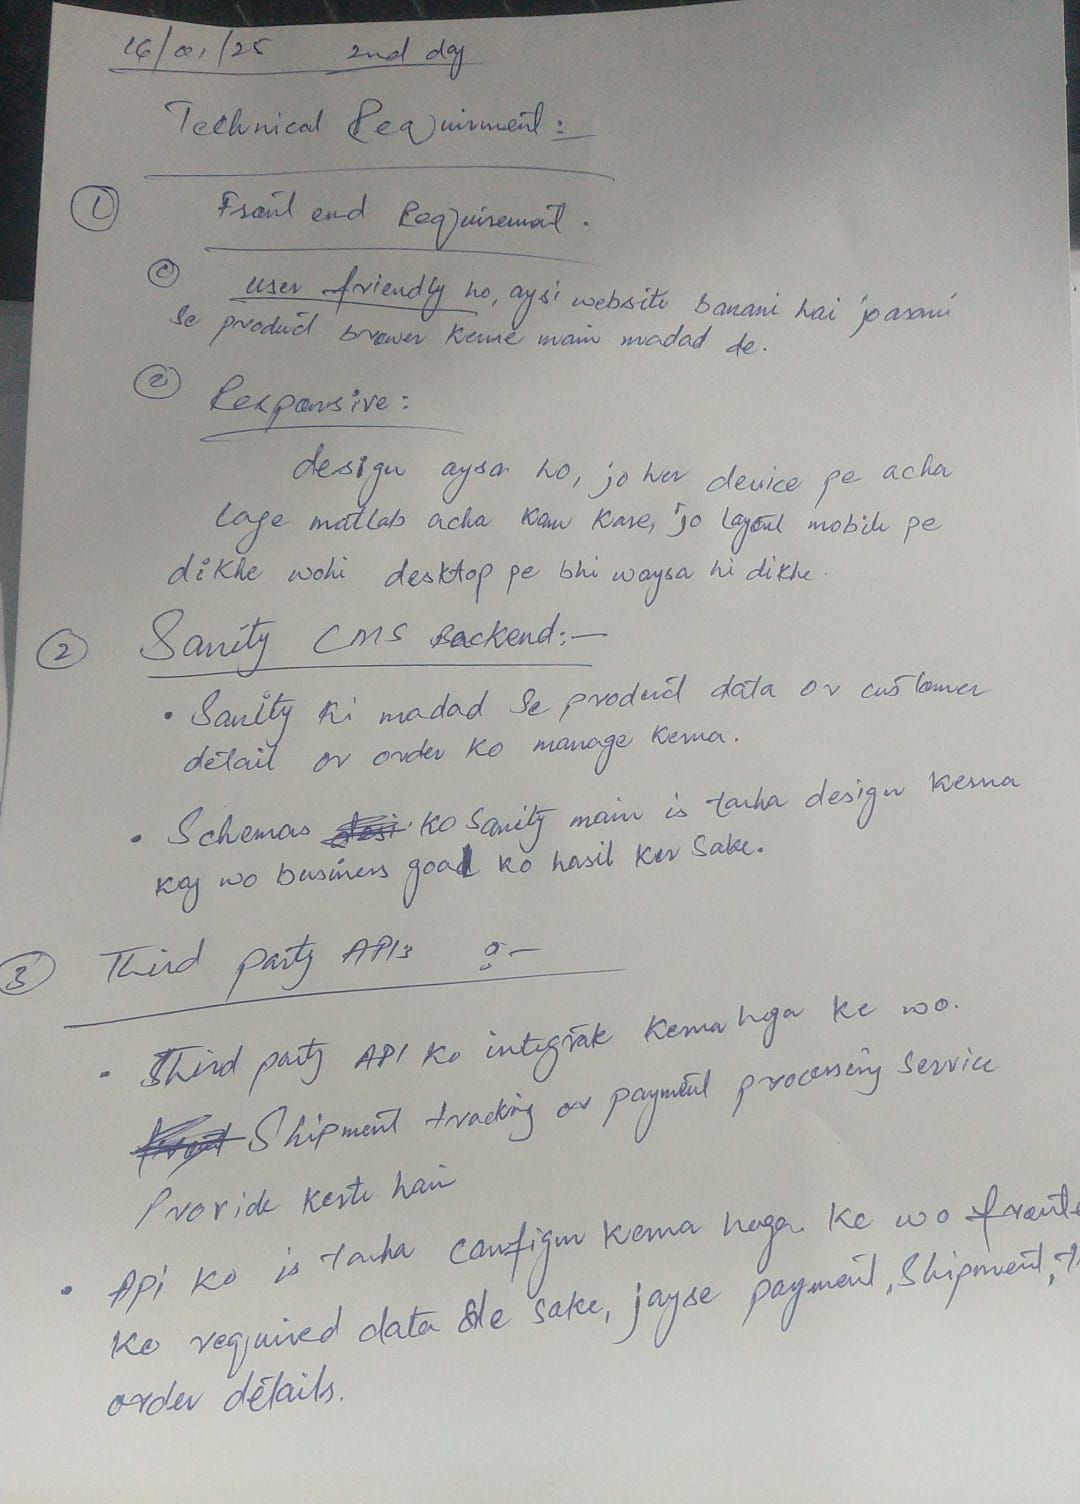 16/01/25 2nd day
Technical Requirment :
① Frontend Requirement.
user friendly ho, aysi website banani hai jo asani
se product brower kerne main madad de.
② Responsive :
design aysa ho, jo her device pe acha
lage matlab acha kam kare, jo layout mobile pe
dikhe wohi desktop pe bhi waysa hi dikhe.
② Sanity CMS Backend:—
• Sanity ki madad se product data or customer
detail or order ko manage kerna.
• Schemas ko Sanity main is tarha design kerna
kay wo business goal ko hasil ker sake.
③ Third party APIs :-
• Third party API ko integrate kerna hoga ke wo.
Shipment tracking or payment processing service
Provide kerte hain
• Api ko is tarha configur kerna hoga ke wo fronte
ko required data de sake, jayse payment, Shipment,
order details.